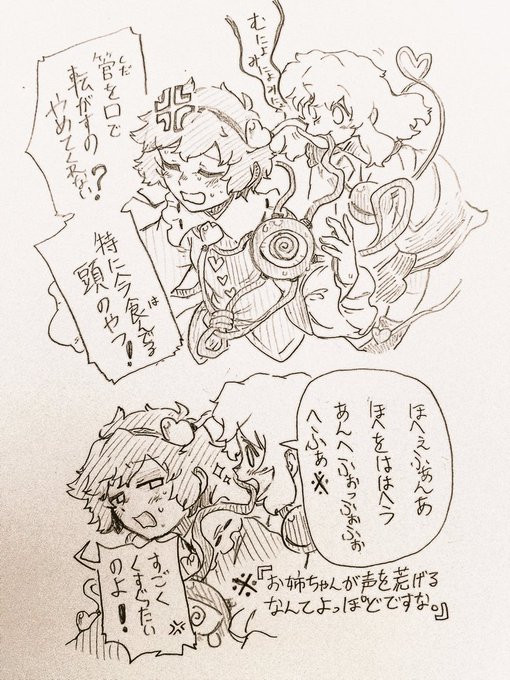 管を口で
くだ
転がすの
やめてくれない?
特に今食んでる
は
頭のやつ!
ほへえふぁんあ
ほへをははへう
あんへふぉっふぉふぉ
へふぁ※
※『お姉ちゃんが声を荒げる
なんてよっぽどですな。』
すごく
くすぐったい
のよ!